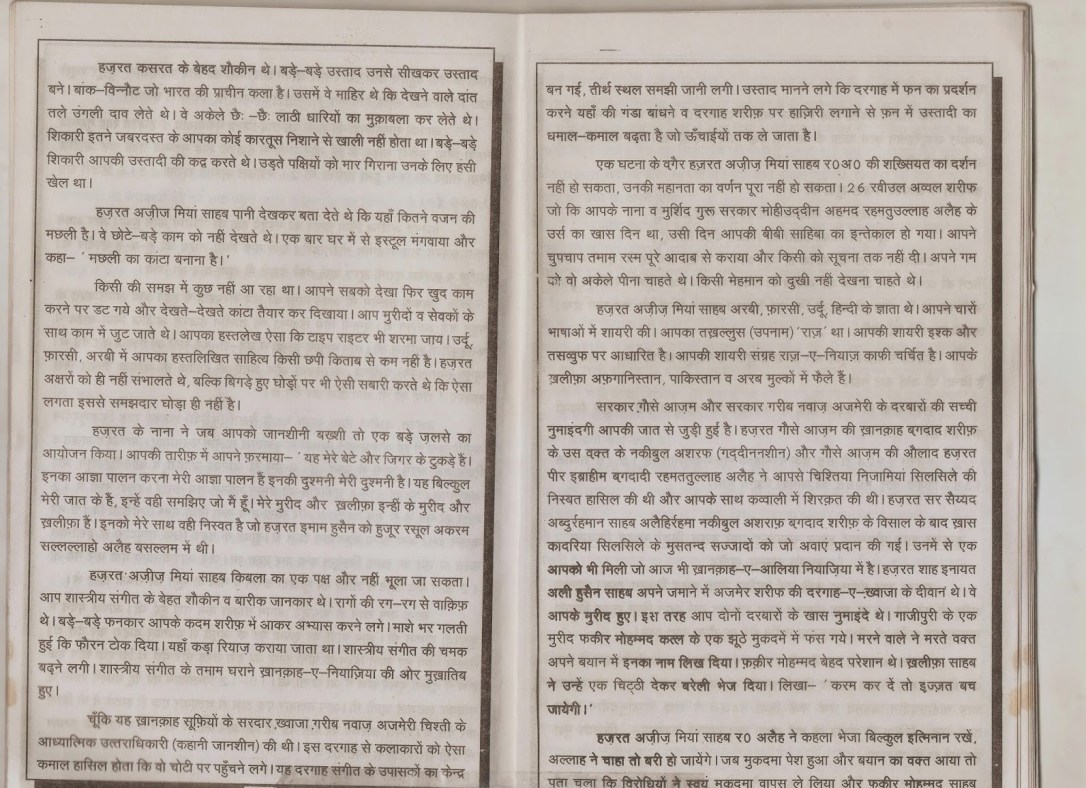 हज़रत कसरत के बेहद शौकीन थे। बड़े–बड़े उस्ताद उनसे सीखकर उस्ताद
बने। बांक–विन्नौट जो भारत की प्राचीन कला है। उसमें वे माहिर थे कि देखने वाले दांत
तले उंगली दाव लेते थे। वे अकेले छैः –छैः लाठी धारियों का मुक़ाबला कर लेते थे।
शिकारी इतने जबरदस्त के आपका कोई कारतूस निशाने से खाली नहीं होता था। बड़े–बड़े
शिकारी आपकी उस्तादी की कद्र करते थे। उड़ते पक्षियों को मार गिराना उनके लिए हंसी
खेल था।
हज़रत अज़ीज मियां साहब पानी देखकर बता देते थे कि यहाँ कितने वजन की
मछली है। वे छोटे–बड़े काम को नहीं देखते थे। एक बार घर में से इस्टूल मंगवाया और
कहा– ' मछली का कांटा बनाना है।'
किसी की समझ में कुछ नहीं आ रहा था। आपने सबको देखा फिर खुद काम
करने पर डट गये और देखते–देखते कांटा तैयार कर दिखाया। आप मुरीदों व सेवकों के
साथ काम में जुट जाते थे। आपका हस्तलेख ऐसा कि टाइप राइटर भी शरमा जाय। उर्दू,
फ़ारसी, अरबी में आपका हस्तलिखित साहित्य किसी छपी किताब से कम नहीं है। हज़रत
अक्षरों को ही नहीं संभालते थे, बल्कि बिगड़े हुए घोड़ों पर भी ऐसी सबारी करते थे कि ऐसा
लगता इससे समझदार घोड़ा ही नहीं है।
हज़रत के नाना ने जब आपको जानशीनी बख्शी तो एक बड़े ज़लसे का
आयोजन किया। आपकी तारीफ़ में आपने फ़रमाया– ' यह मेरे बेटे और जिगर के टुकड़े है।
इनका आज्ञा पालन करना मेरी आज्ञा पालन हैं इनकी दुश्मनी मेरी दुश्मनी है। यह बिल्कुल
मेरी जात के हैं, इन्हें वही समझिए जो मैं हूँ। मेरे मुरीद और ख़लीफ़ा इन्हीं के मुरीद और
ख़लीफ़ा हैं। इनको मेरे साथ वही निस्वत है जो हज़रत इमाम हुसैन को हुजूर रसूल अकरम
सल्लल्लाहो अलैह बसल्लम में थी।
हज़रत अज़ीज मियां साहब किबला का एक पक्ष और नही भूला जा सकता।
आप शास्त्रीय संगीत के बेहत शौकीन व बारीक जानकार थे। रागों की रग–रग से वाक़िफ़
थे। बड़े–बड़े फनकार आपके कदम शरीफ़ में आकर अभ्यास करने लगे। माशे भर गलती
हुई कि फौरन टोक दिया। यहाँ कड़ा रियाज़ कराया जाता था। शास्त्रीय संगीत की चमक
बढ़ने लगी। शास्त्रीय संगीत के तमाम घराने ख़ानक़ाह–ए–नियाज़िया की ओर मुख़ातिब
हुए।
चूँकि यह ख़ानक़ाह सूफ़ियों के सरदार ख़्वाजा ग़रीब नवाज़ अजमेरी चिश्ती के
आध्यात्मिक उत्तराधिकारी (कहानी जानशीन) की थी। इस दरगाह से कलाकारों को ऐसा
कमाल हासिल होता कि वो चोटी पर पहुँचने लगे। यह दरगाह संगीत के उपासकों का केन्द्र
बन गई, तीर्थ स्थल समझी जानी लगी। उस्ताद मानने लगे कि दरगाह में फन का प्रदर्शन
करने यहाँ की गंडा बांधने व दरगाह शरीफ़ पर हाज़िरी लगाने से फ़न में उस्तादी का
धमाल–कमाल बढ़ता है जो ऊँचाईयों तक ले जाता है।
एक घटना के वगैर हज़रत अज़ीज़ मियां साहब र०अ० की शख़्सियत का दर्शन
नहीं हो सकता, उनकी महानता का वर्णन पूरा नहीं हो सकता। 26 रवीउल अव्वल शरीफ
जो कि आपके नाना व मुर्शिद गुरू सरकार मोहीउद्दीन अहमद रहमतुउल्लाह अलैह के
उर्स का खास दिन था, उसी दिन आपकी बीबी साहिबा का इन्तेकाल हो गया। आपने
चुपचाप तमाम रस्म पूरे आदाब से कराया और किसी को सूचना तक नहीं दी। अपने गम
को वो अकेले पीना चाहते थे। किसी मेहमान को दुखी नहीं देखना चाहते थे।
हज़रत अज़ीज़ मियां साहब अरबी, फ़ारसी, उर्दू, हिन्दी के ज्ञाता थे। आपने चारों
भाषाओं में शायरी की। आपका तख़ल्लुस (उपनाम) 'राज़' था। आपकी शायरी इश्क और
तसव्वुफ पर आधारित है। आपकी शायरी संग्रह राज़–ए–नियाज़ काफी चर्चित है। आपके
ख़लीफ़ा अफ़गानिस्तान, पाकिस्तान व अरब मुल्कों में फैले हैं।
सरकार ग़ौसे आज़म और सरकार गरीब नवाज़ अजमेरी के दरबारों की सच्ची
नुमाइंदगी आपकी जात से जुड़ी हुई है। हज़रत गौसे आज़म की ख़ानक़ाह बग़दाद शरीफ़
के उस वक़्त के नकीबुल अशरफ (गद्दीननशीन) और गौसे आज़म की औलाद हज़रत
पीर इब्राहीम बग़दादी रहमततुल्लाह अलैह ने आपसे चिश्तिया निजामियां सिलसिले की
निस्बत हासिल की थी और आपके साथ कव्वाली में शिरक़त की थी। हज़रत सर सैय्यद
अब्दुर्रहमान साहब अलैहिर्रहमा नकीबुल अशराफ़ बग़दाद शरीफ़ के विसाल के बाद ख़ास
कादरिया सिलसिले के मुसतन्द सज्जादों को जो अवाएं प्रदान की गई। उनमें से एक
आपको भी मिली जो आज भी ख़ानक़ाह–ए–आलिया नियाज़िया में है। हज़रत शाह इनायत
अली हुसैन साहब अपने जमाने में अजमेर शरीफ की दरगाह–ए–ख़्वाजा के दीवान थे। वे
आपके मुरीद हुए। इस तरह आप दोनों दरबारों के खास नुमाइंदे थे। गाजीपुरी के एक
मुरीद फकीर मोहम्मद कत्ल के एक झूठे मुकदमें में फंस गये। मरने वाले ने मरते वक्त
अपने बयान में इनका नाम लिख दिया। फ़क़ीर मोहम्मद बेहद परेशान थे। ख़लीफ़ा साहब
ने उन्हें एक चिट्ठी देकर बरेली भेज दिया। लिखा– ' करम कर दें तो इज्ज़त बच
जायेगी।'
हज़रत अज़ीज़ मियां साहब र० अलैह ने कहला भेजा बिल्कुल इत्मिनान रखें,
अल्लाह ने चाहा तो बरी हो जायेंगे। जब मुकदमा पेश हुआ और बयान का वक्त आया तो
पता चला कि विरोधियों ने स्वयं मुकदमा वापस ले लिया और फकीर मोहम्मद साहब